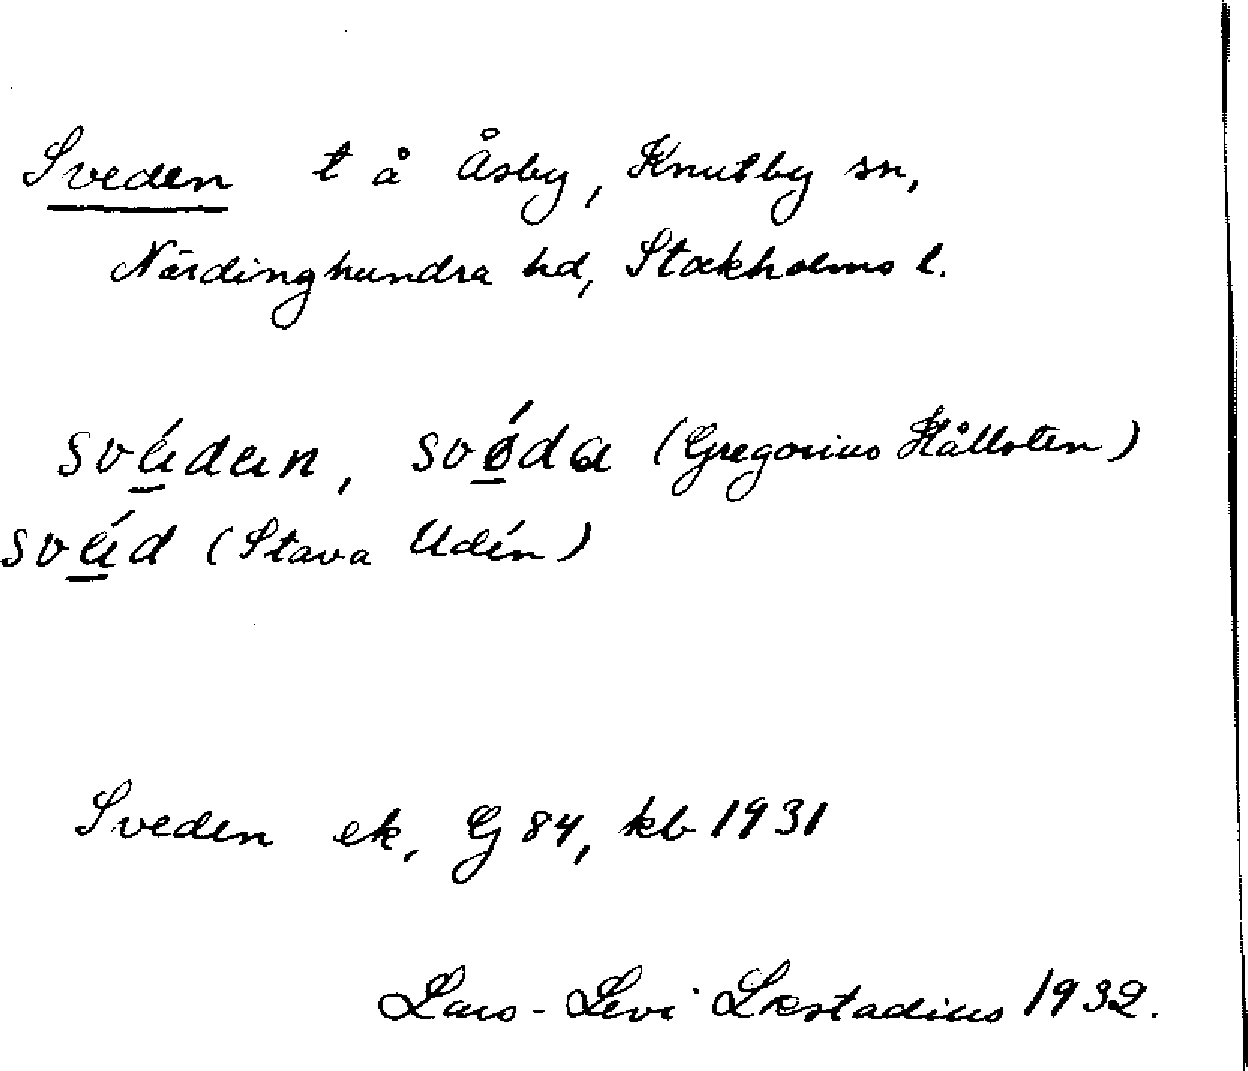 Sveden t å Åsby, Knutby sn,
Närdinghundra hd, Stockholms l.
svédan, svǿda (Gregorius Hållsten)
svéd (Stava Udén)
Sveden ek, G 84, kb 1931
Lars-Levi Læstadius 1932.